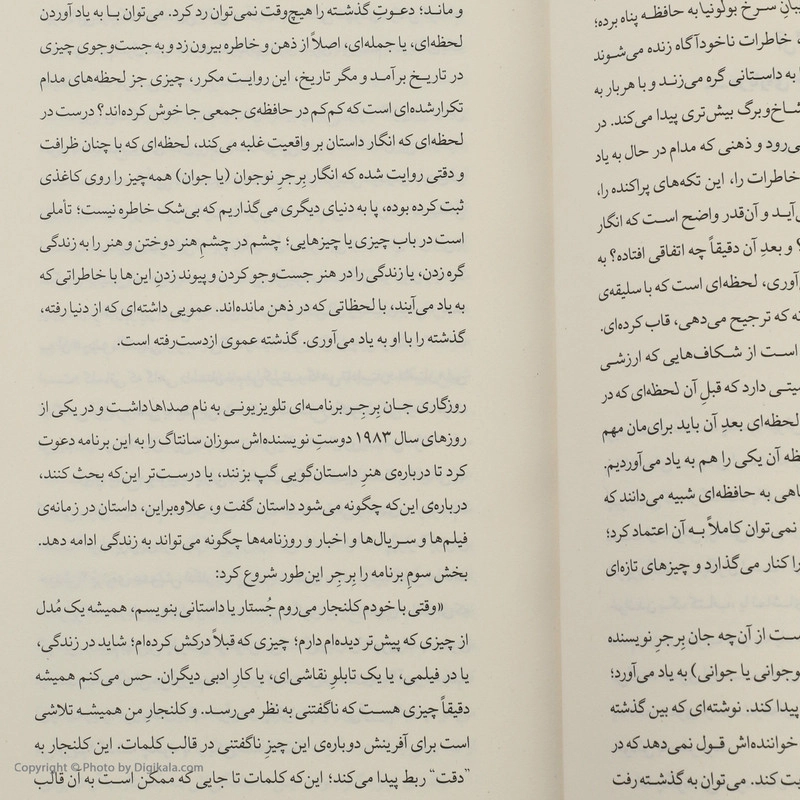 بیان سرخ بولونیا به حافظه پناه برده؛
، خاطرات ناخودآگاه زنده می‌شوند
به داستانی گره می‌زند و با هر بار به
شاخ‌وبرگ بیش‌تری پیدا می‌کند. در
می‌رود و ذهنی که مدام در حال به یاد
خاطرات را، این تکه‌های پراکنده را،
می‌آید و آن‌قدر واضح است که انگار
؟ و بعدِ آن دقیقاً چه اتفاقی افتاده؟ به
آوری، لحظه‌ای است که با سلیقه‌ی
که ترجیح می‌دهی، قاب کرده‌ای.
است از شکاف‌هایی که ارزشی
دارد که قبلِ آن لحظه‌ای که در
لحظه‌ای بعدِ آن باید برای‌مان مهم
آن یکی را هم به یاد می‌آوردیم.
به حافظه‌ای شبیه می‌دانند که
نمی‌توان کاملاً به آن اعتماد کرد؛
را کنار می‌گذارد و چیزهای تازه‌ای
از آن‌چه جان بِرجِر نویسنده
نوجوانی یا جوانی) به یاد می‌آورد؛
پیدا کند. نوشته‌ای که بین گذشته
خواننده‌اش قول نمی‌دهد که در
کند. می‌توان به گذشته رفت
و ماند؛ دعوتِ گذشته را هیچ‌وقت نمی‌توان رد کرد. می‌توان با به یاد آوردن
لحظه‌ای، یا جمله‌ای، اصلاً از ذهن و خاطره بیرون زد و به جست‌وجوی چیزی
در تاریخ برآمد و مگر تاریخ، این روایت مکرر، چیزی جز لحظه‌های مدام
تکرارشده‌ای است که کم‌کم در حافظه‌ی جمعی جا خوش کرده‌اند؟ درست در
لحظه‌ای که انگار داستان بر واقعیت غلبه می‌کند، لحظه‌ای که با چنان ظرافت
و دقتی روایت شده که انگار بِرجرِ نوجوان (یا جوان) همه‌چیز را روی کاغذی
ثبت کرده بوده، پا به دنیای دیگری می‌گذاریم که بی‌شک خاطره نیست؛ تأملی
است در باب چیزی یا چیزهایی؛ چشم در چشمِ هنر دوختن و هنر را به زندگی
گره زدن، یا زندگی را در هنر جست‌وجو کردن و پیوند زدنِ این‌ها با خاطراتی که
به یاد می‌آیند، با لحظاتی که در ذهن مانده‌اند. عمویی داشته‌ای که از دنیا رفته،
گذشته را با او به یاد می‌آوری. گذشته عموی ازدست‌رفته است.
روزگاری جان بِرجِر برنامه‌ای تلویزیونی به نام صداها داشت و در یکی از
روزهای سال ۱۹۸۳ دوستِ نویسنده‌اش سوزان سانتاگ را به این برنامه دعوت
کرد تا درباره‌ی هنرِ داستان‌گویی گپ بزنند، یا درست‌تر این‌که بحث کنند،
درباره‌ی این‌که چگونه می‌شود داستان گفت و، علاوه‌براین، داستان در زمانه‌ی
فیلم‌ها و سریال‌ها و اخبار و روزنامه‌ها چگونه می‌تواند به زندگی ادامه دهد.
بخش سومِ برنامه را بِرجِر این‌طور شروع کرد:
«وقتی با خودم کلنجار می‌روم جُستار یا داستانی بنویسم، همیشه یک مُدل
از چیزی که پیش‌تر دیده‌ام دارم؛ چیزی که قبلاً درکش کرده‌ام؛ شاید در زندگی،
یا در فیلمی، یا یک تابلوِ نقاشی‌ای، یا کارِ ادبی دیگران. حس می‌کنم همیشه
دقیقاً چیزی هست که ناگفتنی به نظر می‌رسد. و کلنجارِ من همیشه تلاشی
است برای آفرینش دوباره‌ی این چیزِ ناگفتنی در قالب کلمات. این کلنجار به
"دقت" ربط پیدا می‌کند؛ این‌که کلمات تا جایی که ممکن است به آن قالب
Copyright © Photo by Digikala.com